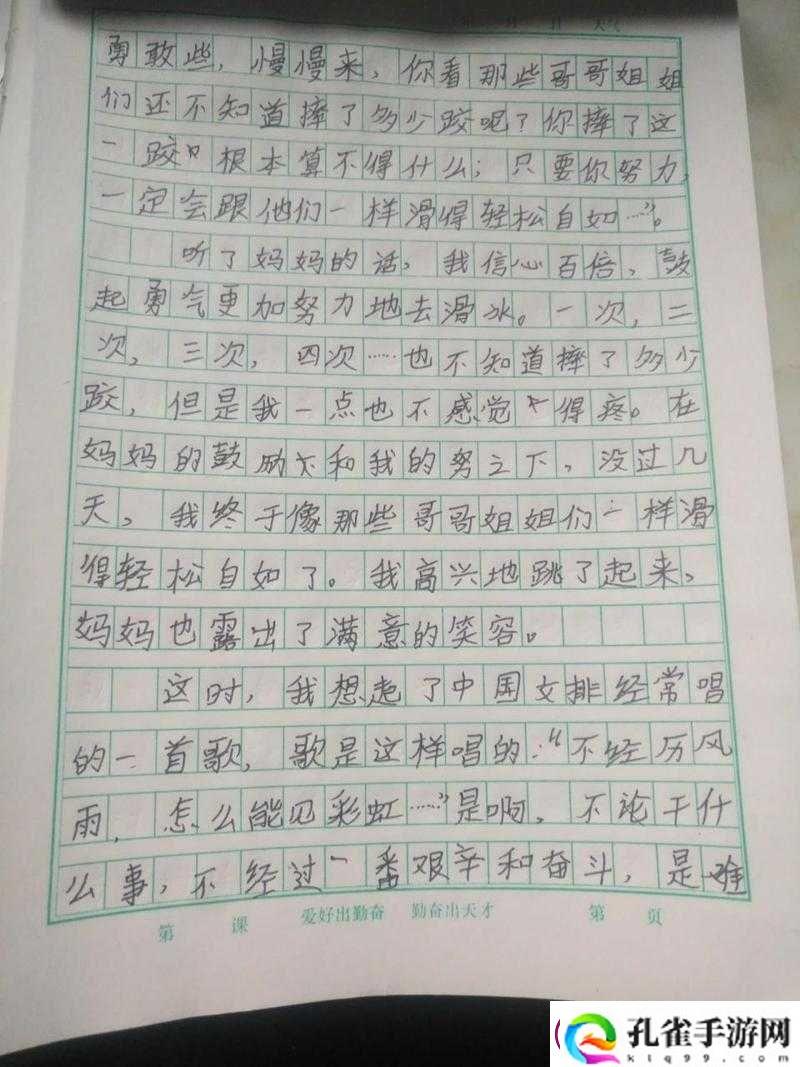 勇敢些，慢慢来，你看那些哥哥姐姐
们还不知道摔了多少跤呢？你摔了这
一跤，根本算不得什么；只要你努力，
一定会跟他们一样滑得轻松自如……”。
听了妈妈的话，我信心百倍，鼓
起勇气更加努力地去滑冰。一次，二
次，三次，四次……也不知道摔了多少
跤，但是我一点也不感觉得疼。在
妈妈的鼓励下和我的努之下，没过几
天，我终于像那些哥哥姐姐们一样滑
得轻松自如了。我高兴地跳了起来，
妈妈也露出了满意的笑容。
这时，我想起了中国女排经常唱
的一首歌，歌是这样唱的：“不经历风
雨，怎么能见彩虹……”是啊，不论干什
么事，不经过一番艰辛和奋斗，是难
第 课 爱好出勤奋 勤奋出天才 第 页
孔雀手游网
ktq99.com